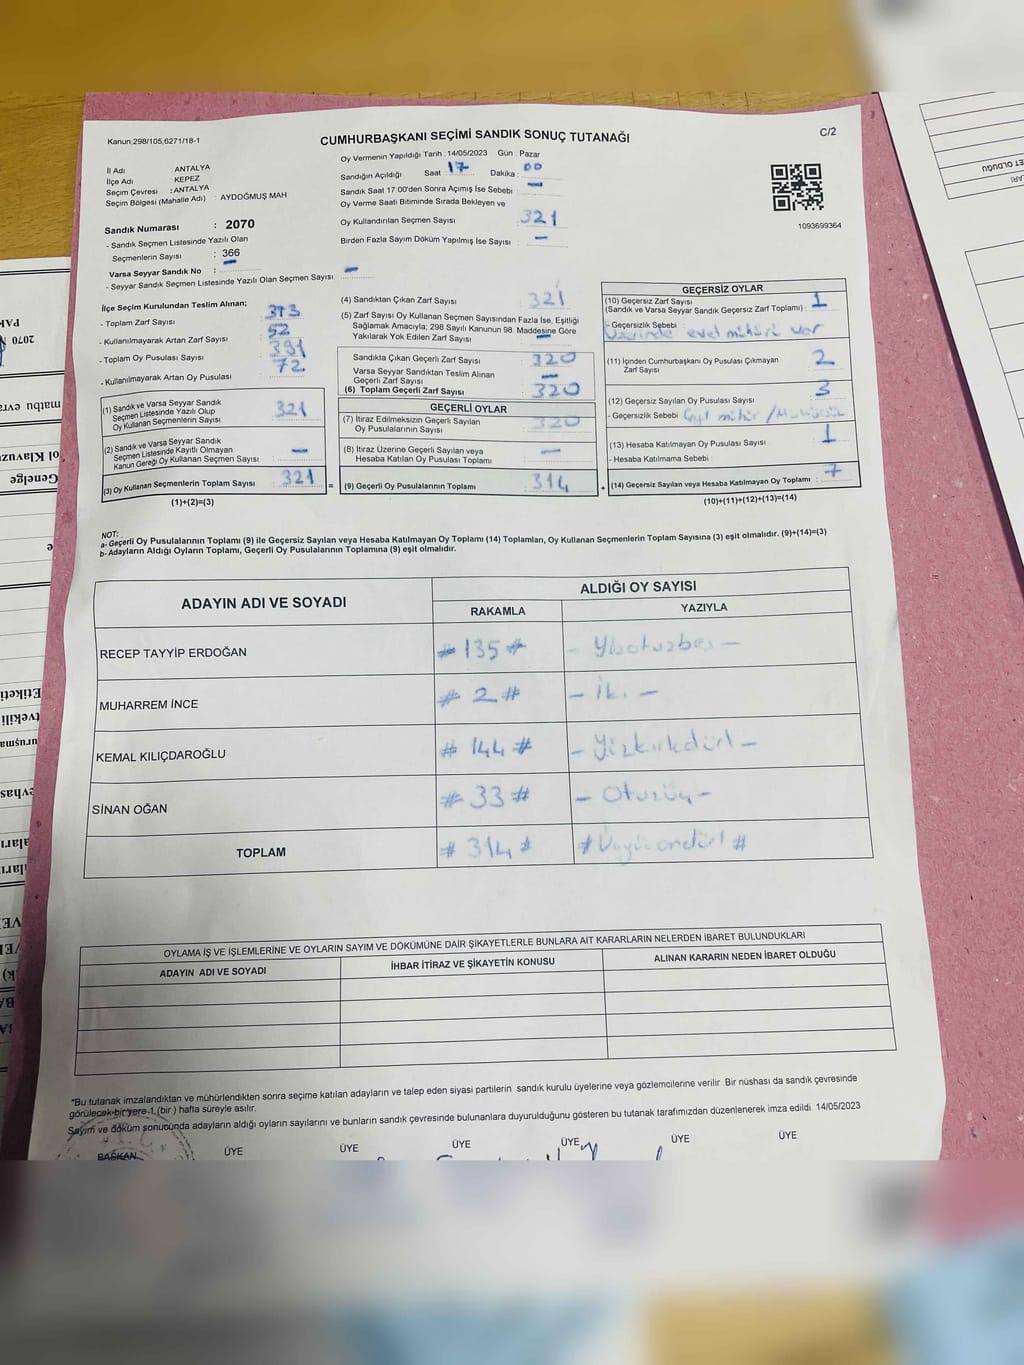 Kanun 298/105,6271/18-1
CUMHURBAŞKANI SEÇİMİ SANDIK SONUÇ TUTANAĞI
C/2
İl Adı : ANTALYA
İlçe Adı : KEPEZ
Seçim Çevresi : ANTALYA
Seçim Bölgesi (Mahalle Adı) : AYDOĞMUŞ MAH
Sandık Numarası : 2070
- Sandık Seçmen Listesinde Yazılı Olan
Seçmenlerin Sayısı : 366
Varsa Seyyar Sandık No : –
- Seyyar Sandık Seçmen Listesinde Yazılı Olan Seçmen Sayısı : –
Oy Vermenin Yapıldığı Tarih : 14/05/2023 Gün : Pazar
Sandığın Açıldığı Saat : 17 Dakika : 00
Sandık Saat 17 00'den Sonra Açımış İse Sebebi : –
Oy Verme Saati Bitiminde Sırada Bekleyen ve
Oy Kullandırılan Seçmen Sayısı : 321
Birden Fazla Sayım Döküm Yapılmış İse Sayısı : –
1093699364
İlçe Seçim Kurulundan Teslim Alınan;
- Toplam Zarf Sayısı : 373
- Kullanılmayarak Artan Zarf Sayısı : 52
- Toplam Oy Pusulası Sayısı : 391
- Kullanılmayarak Artan Oy Pusulası : 72
(1) Sandık ve Varsa Seyyar Sandık
Seçmen Listesinde Yazılı Olup
Oy Kullanan Seçmenlerin Sayısı : 321
(2) Sandık ve Varsa Seyyar Sandık
Seçmen Listesinde Kayıtlı Olmayan
Kanun Gereği Oy Kullanan Seçmen Sayısı : –
(3) Oy Kullanan Seçmenlerin Toplam Sayısı : 321
(1)+(2)=(3)
(4) Sandıktan Çıkan Zarf Sayısı : 321
(5) Zarf Sayısı Oy Kullanan Seçmen Sayısından Fazla İse, Eşitliği
Sağlamak Amacıyla; 298 Sayılı Kanunun 98. Maddesine Göre
Yakılarak Yok Edilen Zarf Sayısı : –
Sandıkta Çıkan Geçerli Zarf Sayısı : 320
Varsa Seyyar Sandıktan Teslim Alınan
Geçerli Zarf Sayısı : –
(6) Toplam Geçerli Zarf Sayısı : 320
GEÇERLİ OYLAR
(7) İtiraz Edilmeksizin Geçerli Sayılan
Oy Pusulalarının Sayısı : 320
(8) İtiraz Üzerine Geçerli Sayılan veya
Hesaba Katılan Oy Pusulası Toplamı : –
= (9) Geçerli Oy Pusulalarının Toplamı : 314 +
GEÇERSİZ OYLAR
(10) Geçersiz Zarf Sayısı
(Sandık ve Varsa Seyyar Sandık Geçersiz Zarf Toplamı) : 1
- Geçersizlik Sebebi :
üzerinde evet mühürü var
(11) İçinden Cumhurbaşkanı Oy Pusulası Çıkmayan
Zarf Sayısı : 2
(12) Geçersiz Sayılan Oy Pusulası Sayısı : 3
- Geçersizlik Sebebi :
(13) Hesaba Katılmayan Oy Pusulası Sayısı : 1
- Hesaba Katılmama Sebebi :
(14) Geçersiz Sayılan veya Hesaba Katılmayan Oy Toplamı : 7
(10)+(11)+(12)+(13)=(14)
NOT:
a- Geçerli Oy Pusulalarının Toplamı (9) ile Geçersiz Sayılan veya Hesaba Katılmayan Oy Toplamı (14) Toplamları, Oy Kullanan Seçmenlerin Toplam Sayısına (3) eşit olmalıdır. (9)+(14)=(3)
b- Adayların Aldığı Oyların Toplamı, Geçerli Oy Pusulalarının Toplamına (9) eşit olmalıdır.
ADAYIN ADI VE SOYADI
ALDIĞI OY SAYISI
RAKAMLA YAZIYLA
RECEP TAYYİP ERDOĞAN # 135 # – Yüzotuzbeş –
MUHARREM İNCE # 2 # – İki –
KEMAL KILIÇDAROĞLU # 144 # – Yüzkırkdört –
SİNAN OĞAN # 33 # – Otuzüç –
TOPLAM # 314 # # Üçyüzondört #
OYLAMA İŞ VE İŞLEMLERİNE VE OYLARIN SAYIM VE DÖKÜMÜNE DAİR ŞİKAYETLERLE BUNLARA AİT KARARLARIN NELERDEN İBARET BULUNDUKLARI
ADAYIN ADI VE SOYADI İHBAR İTİRAZ VE ŞİKAYETİN KONUSU ALINAN KARARIN NEDEN İBARET OLDUĞU
*Bu tutanak imzalandıktan ve mühürlendikten sonra seçime katılan adayların ve talep eden siyasi partilerin sandık kurulu üyelerine veya gözlemcilerine verilir. Bir nüshası da sandık çevresinde
görülecek bir yere 1 (bir ) hafta süreyle asılır.
Sayım ve döküm sonucunda adayların aldığı oyların sayılarını ve bunların sandık çevresinde bulunanlara duyurulduğunu gösteren bu tutanak tarafımızdan düzenlenerek imza edildi. 14/05/2023
BAŞKAN ÜYE ÜYE ÜYE ÜYE ÜYE ÜYE